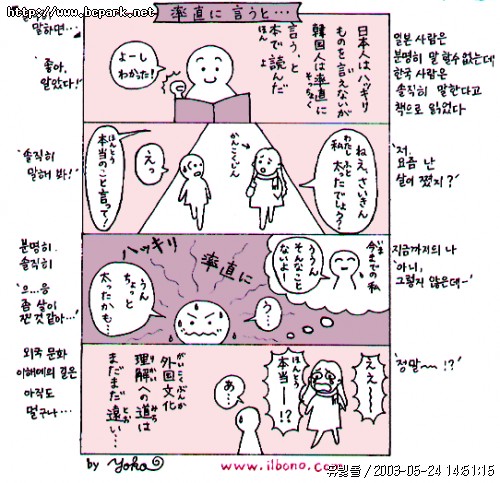 https://www.bcpark.net
率直に言うと…
말하면…
"좋아,
알았다!"
よーし
わかった!
日本人はハッキリ
ものを言えないが
韓国人は率直に
そっちょく
言う、と
本で読んだ
ほん
よ
일본 사람은
분명히 말 할수없는데
한국 사람은
솔직히 말한다고
책으로 읽었다
ねえ、さいきん
私、太ったでしょう?
わたし
ふと
かんこくじん
えっ
本当のこと言って!
ほんとう
"솔직히
말해 봐!"
"저,
요즘 난
살이 쪘지?"
분명히.
솔직히
"으…응
좀 살이
찐것 같아…"
ハッキリ
率直に
今までの私
いま
ううん
そんなこと
ないよー
う…
うん
ちょっと
太ったかも…
지금까지의 나
"아니,
그렇지 않은데-"
외국 문화
이해에의 길은
아직도
멀구나…
ええ〜
本当ー!?
ほんとう
あ…
外国文化
がいこくぶんか
理解への道は
りかい
みち
まだまだ遠い…
とお
"정말~~ !?"
by Yoko
www.ilbono.com
/ 2003-05-24 14:51:15